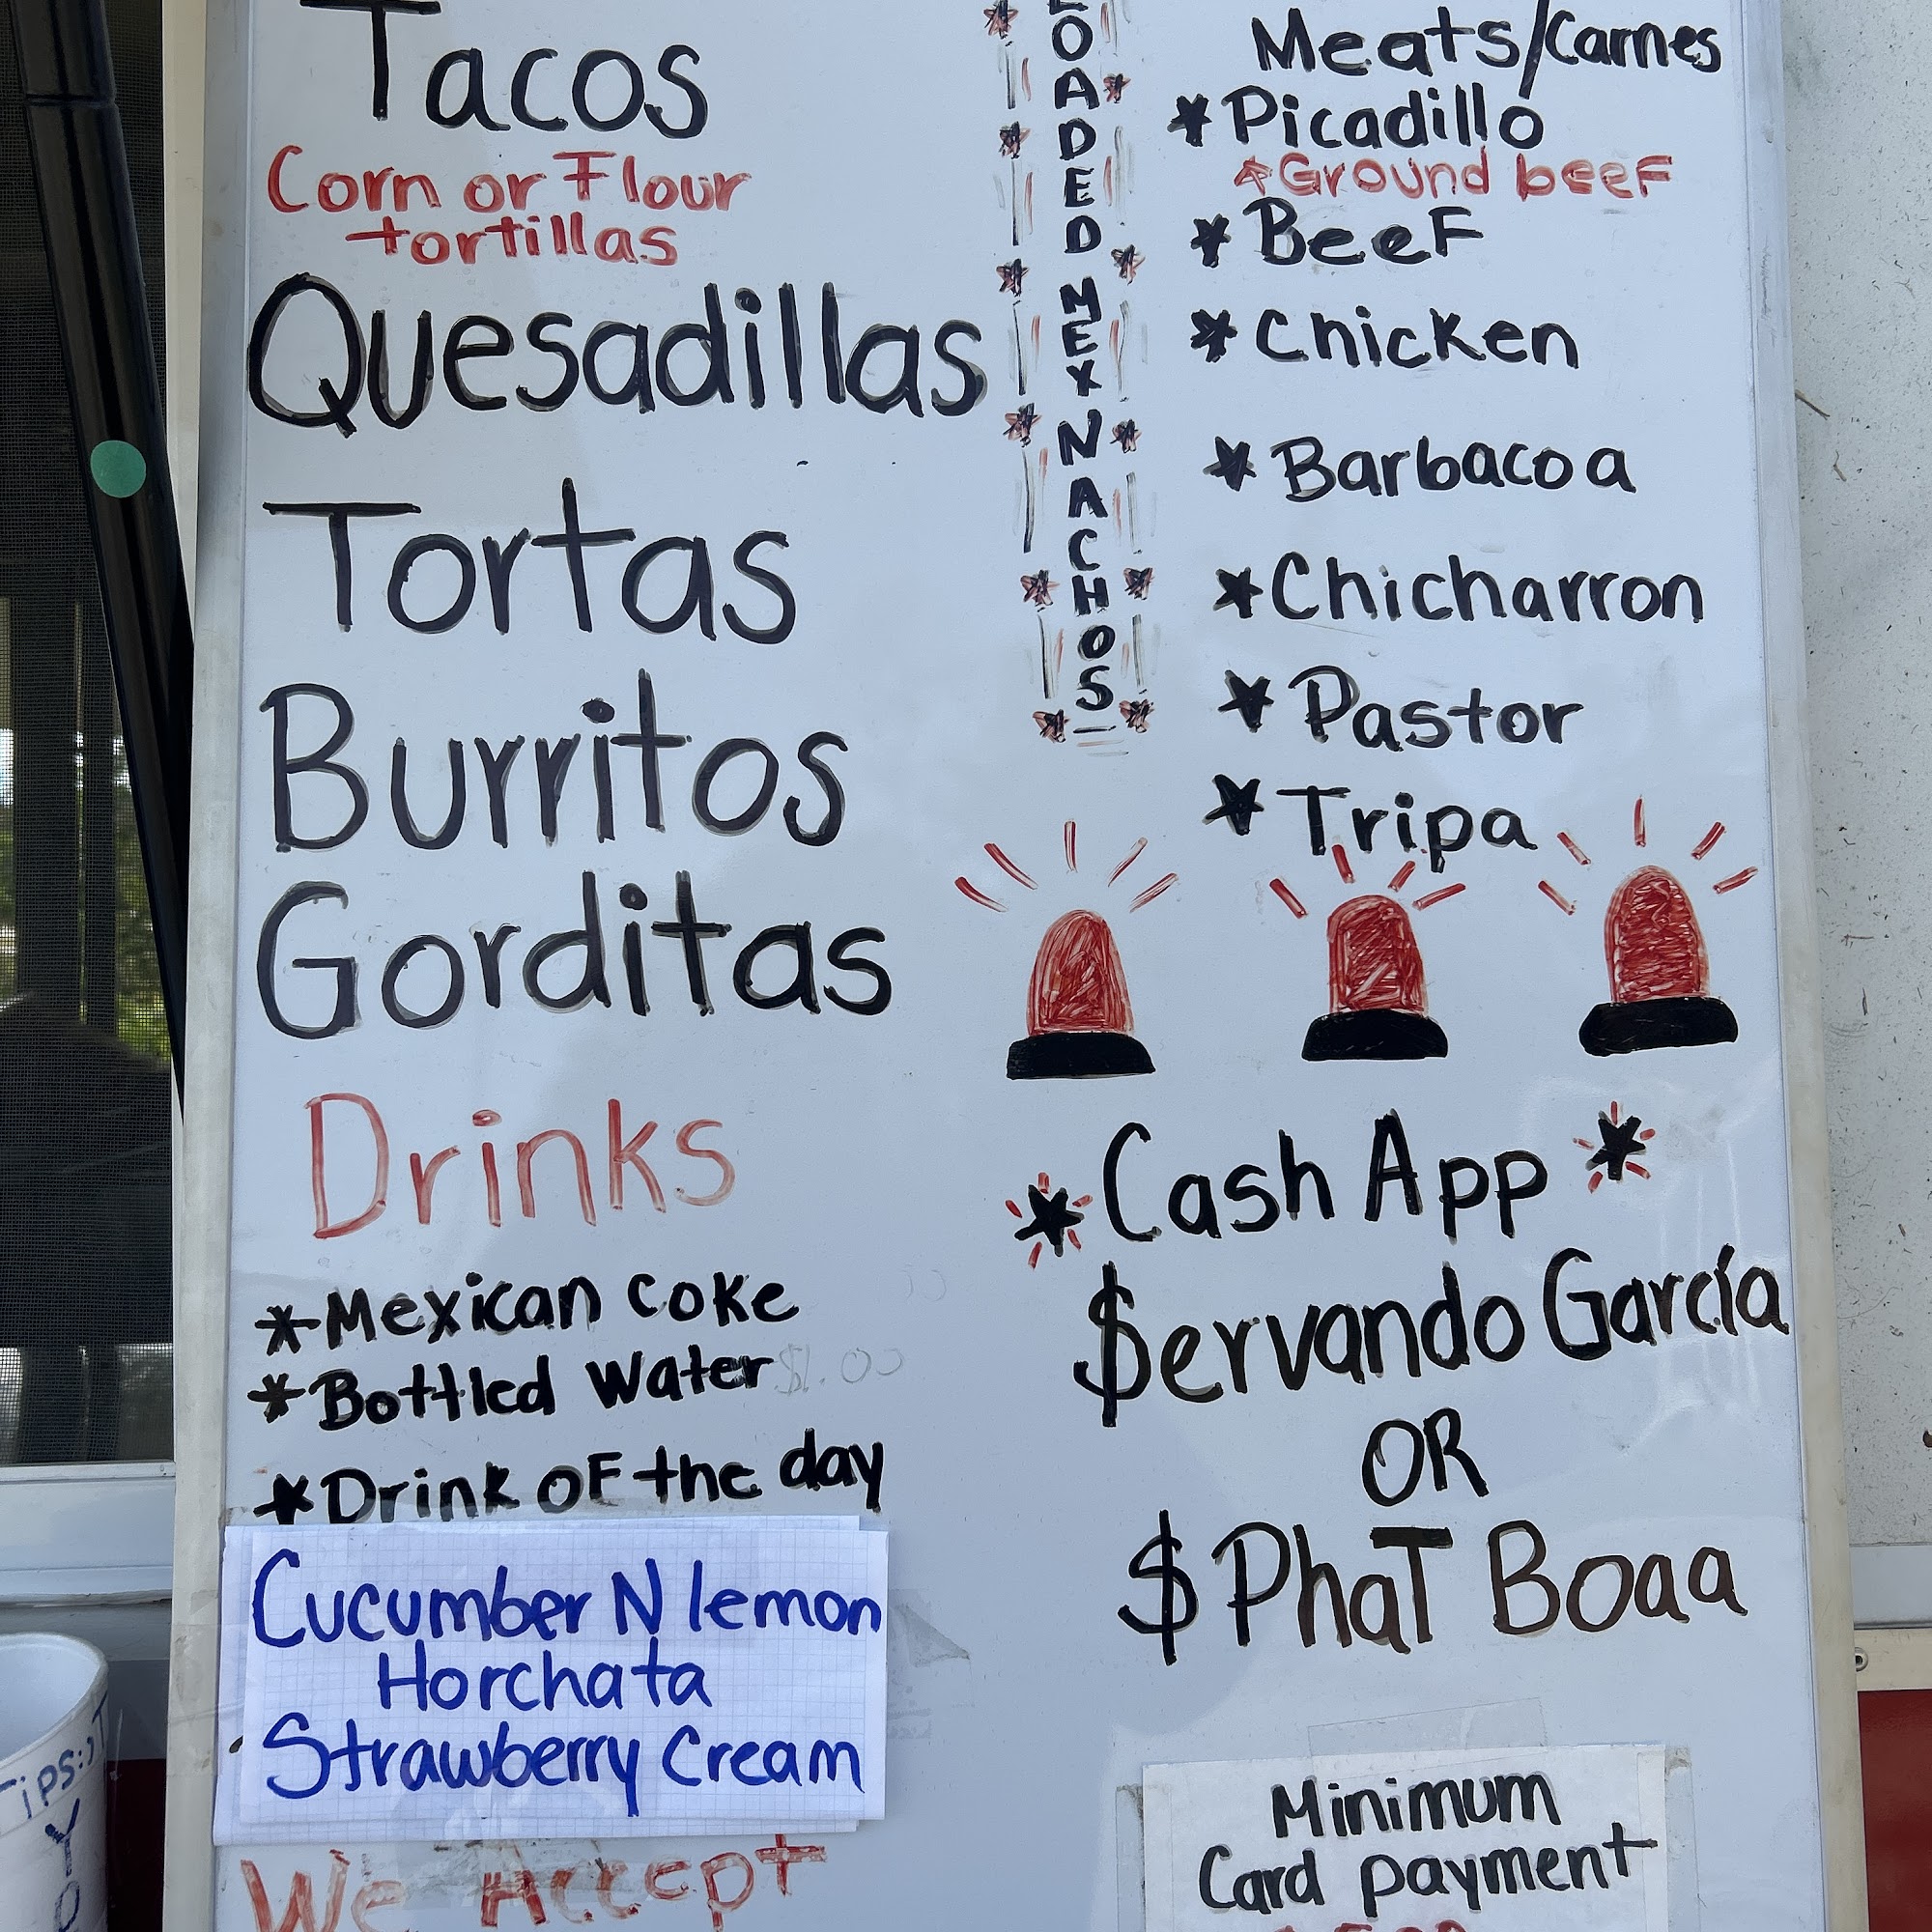 Tacos
Corn or Flour
tortillas
Quesadillas
Tortas
Burritos
Gorditas
Drinks
*Mexican coke
*Bottled water $1.00
*Drink of the day
Cucumber N lemon
Horchata
Strawberry Cream
We Accept
LOADED MEX NACHOS
Meats/Carnes
*Picadillo
*Ground beef
*Beef
*Chicken
*Barbacoa
*Chicharron
*Pastor
*Tripa
*Cash App*
$ervando García
OR
$PhaT Boaa
Minimum
Card payment
Tips: